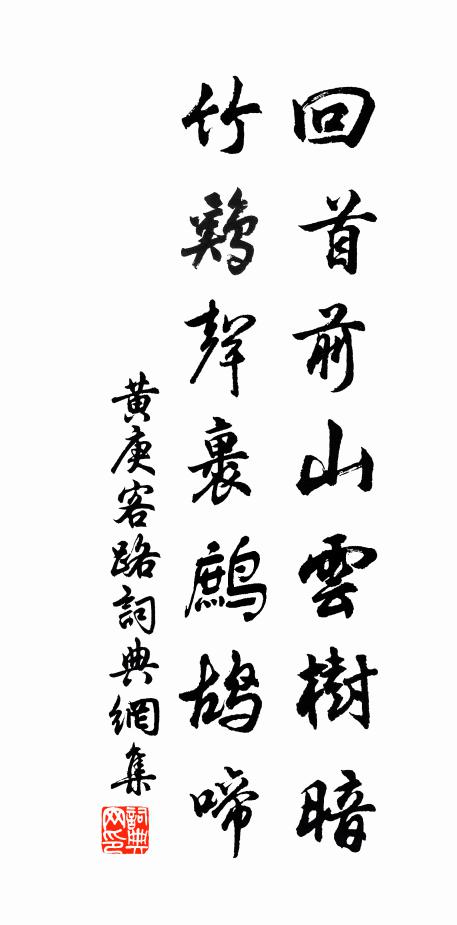 回首前山雲樹暗
竹鷄聲裏鷓鴣啼
黄庚客路詞典網集
詞典网印